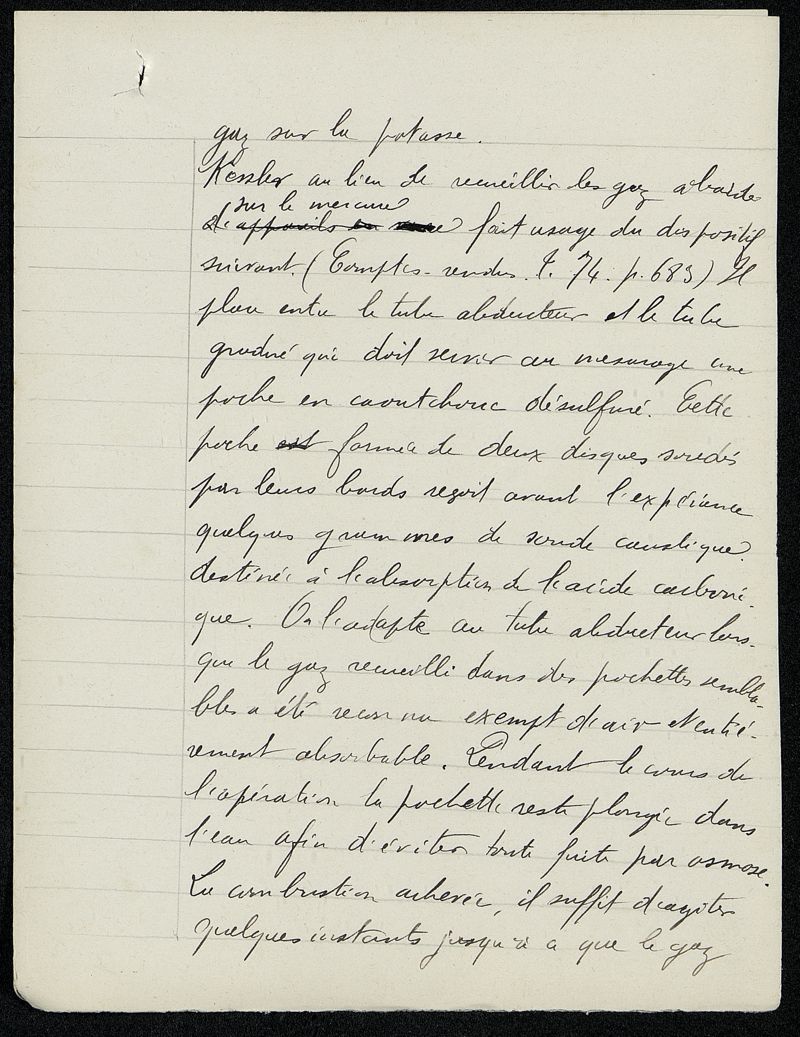 gaz sur la potasse.
Kessler au lieu de recueillir les gaz d'abord
sur le mercure
d'appareils en fait usage du dispositif
suivant. (Comptes-rendus. t. 74. p. 683) Il
place entre le tube abducteur et le tube
gradué qui doit servir au mesurage une
poche en caoutchouc désulfuré. Cette
poche est formée de deux disques soudés
par leurs bords reçoit avant l'expérience
quelques grammes de soude caustique
destinée à l'absorption de l'acide carboni-
que. On l'adapte au tube abducteur lors-
que le gaz recueilli dans des pochettes sembla-
bles a été reconnu exempt d'air et entiè-
rement absorbable. Pendant le cours de
l'opération la pochette reste plongée dans
l'eau afin d'éviter toute fuite par osmose.
La combustion achevée, il suffit d'agiter
quelques instants jusqu'à ce que le gaz